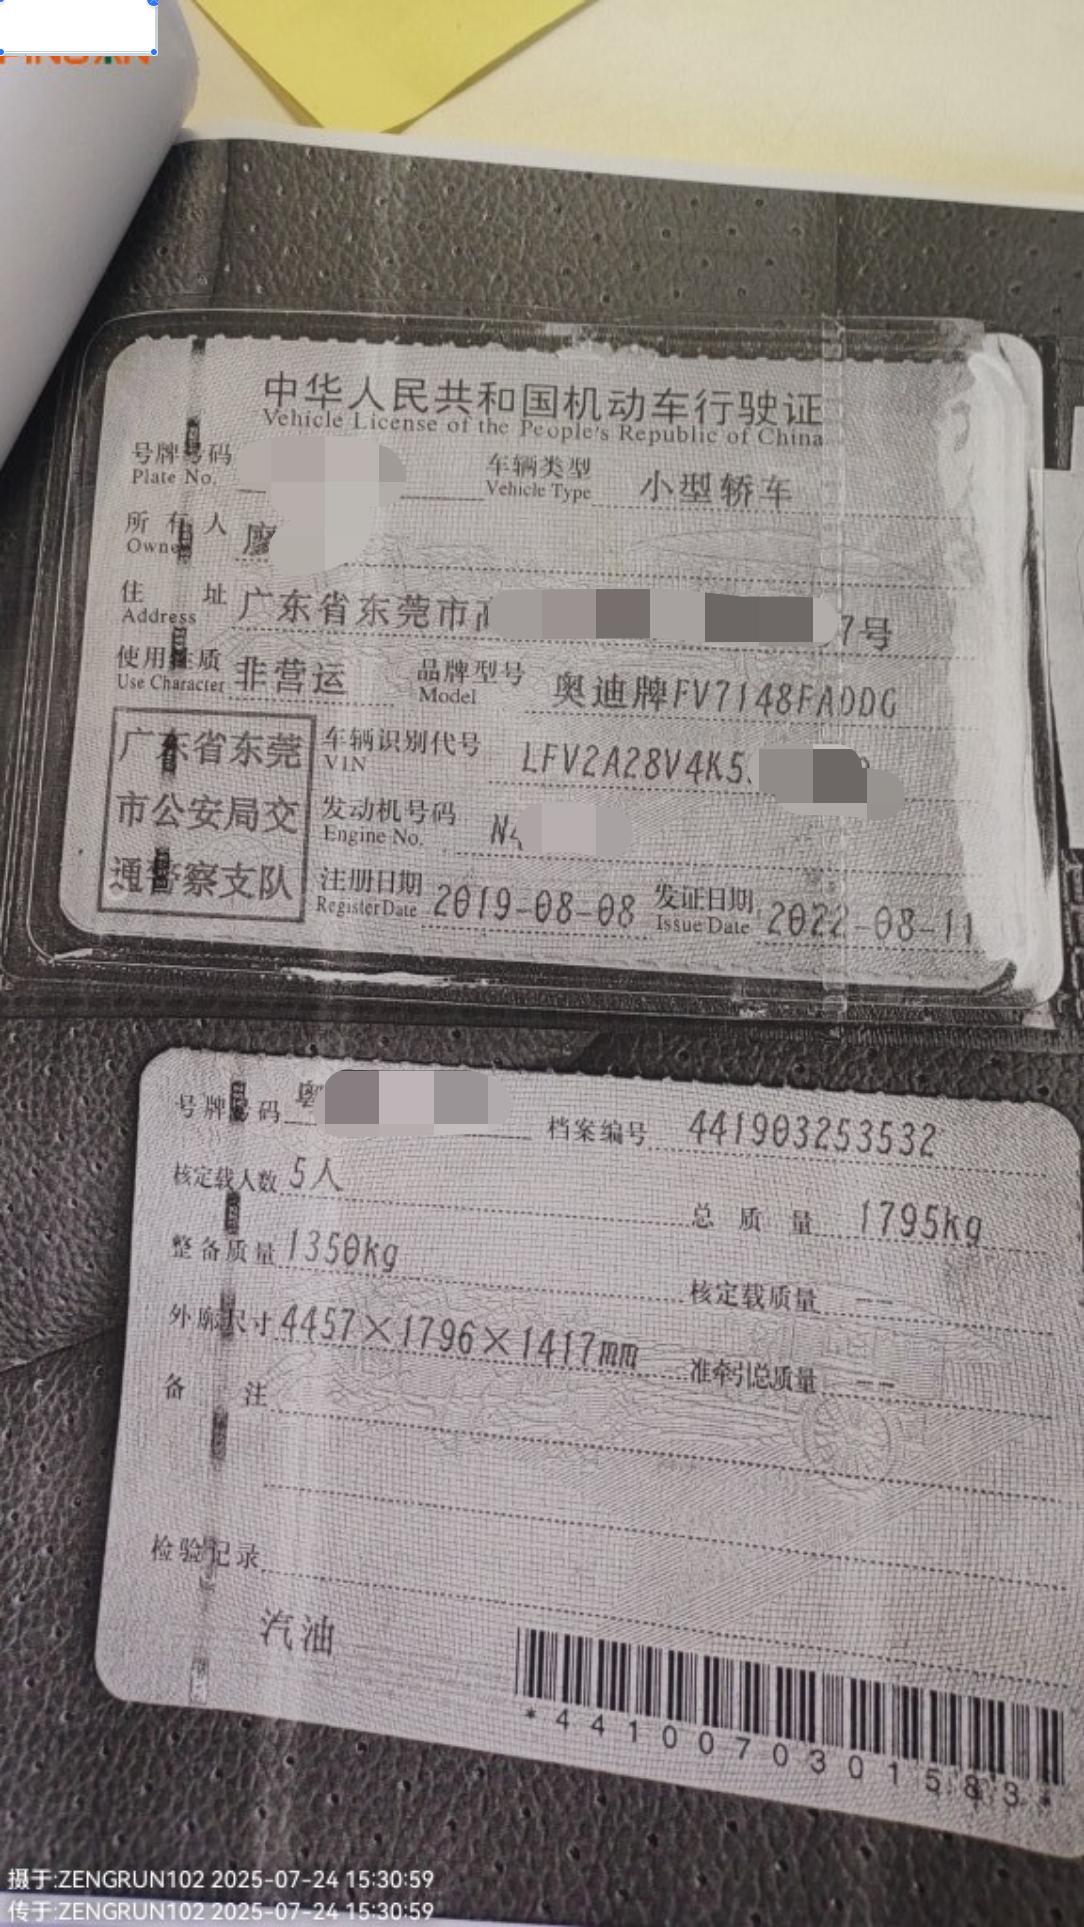 中华人民共和国机动车行驶证
Vehicle License of the People's Republic of China
号牌号码 车辆类型 小型轿车
Plate No. Vehicle Type
所有人 廖
Owner
住址 广东省东莞市 7号
Address
使用性质 非营运 品牌型号 奥迪牌FV7148FADDG
Use Character Model
广东省东莞 车辆识别代号 LFV2A28V4K5
市公安局交 VIN
通警察支队 发动机号码 N4
Engine No.
注册日期 2019-08-08 发证日期 2022-08-11
Register Date Issue Date
号牌号码 粤 档案编号 441903253532
核定载人数 5人 总质量 1795kg
整备质量 1350kg 核定载质量 --
外廓尺寸 4457×1796×1417mm 准牵引总质量 --
备注
检验记录
汽油
*4410070301583*
摄于:ZENGRUN102 2025-07-24 15:30:59
传于:ZENGRUN102 2025-07-24 15:30:59